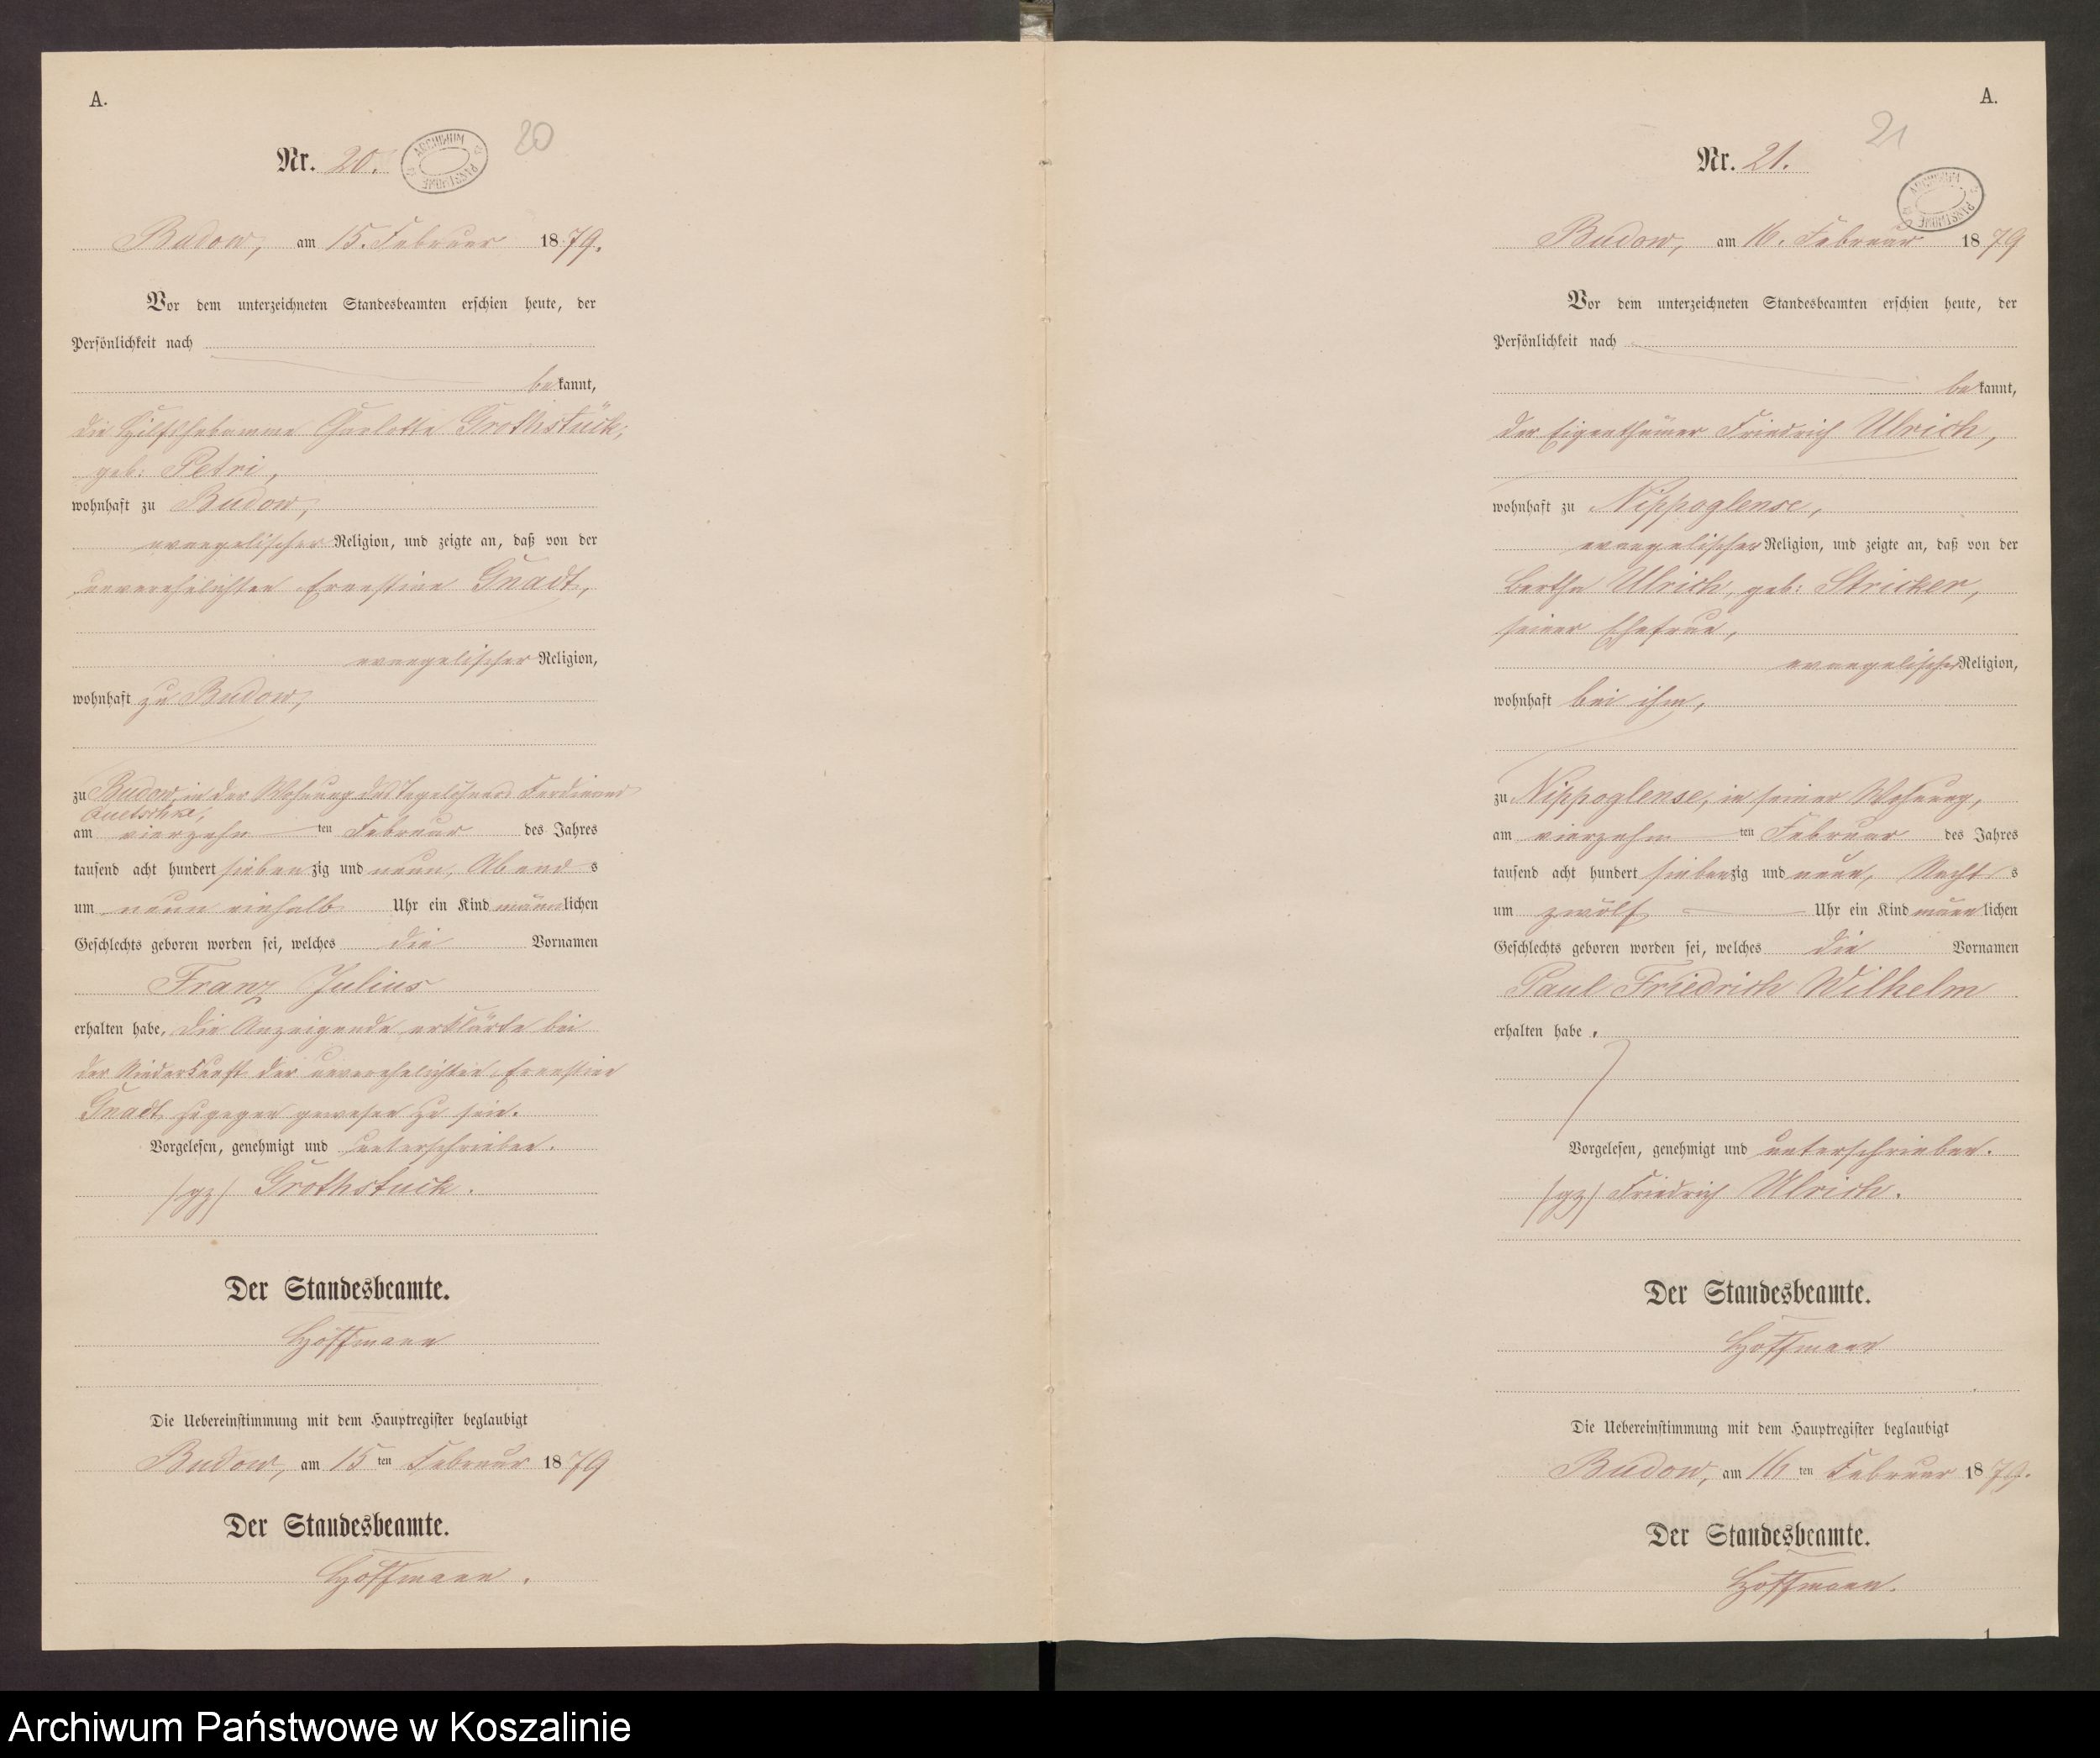 A.
Nr. 20.
20
ARCHIWUM PAŃSTWOWE
Budow, am 15. Februar 1879.
Vor dem unterzeichneten Standesbeamten erschien heute, der
Persönlichkeit nach
bekannt,
die Hilfshebamme Charlotte Grothstück,
geb: Petri,
wohnhaft zu Budow,
evangelischer Religion, und zeigte an, daß von der
unverehelichten Ernestine Gnadt,
evangelischer Religion,
wohnhaft zu Budow,
zu Budow, in der Wohnung des Tagelöhners Ferdinand
Quetschke,
am vierzehn ten Februar des Jahres
tausend acht hundert siebenzig und neun, Abends
um neun einhalb Uhr ein Kind männlichen
Geschlechts geboren worden sei, welches die Vornamen
Franz Julius
erhalten habe. Die Anzeigende erklärte bei
der Niederkunft der unverehelichten Ernestine
Gnadt zugegen gewesen zu sein.
Vorgelesen, genehmigt und unterschrieben.
/gz/ Grothstück.
Der Standesbeamte.
Hoffmann
Die Uebereinstimmung mit dem Hauptregister beglaubigt
Budow, am 15ten Februar 1879
Der Standesbeamte.
Hoffmann.
A.
Nr. 21.
21
ARCHIWUM PAŃSTWOWE
Budow, am 16. Februar 1879
Vor dem unterzeichneten Standesbeamten erschien heute, der
Persönlichkeit nach
bekannt,
der Eigenthümer Friedrich Ulrich,
wohnhaft zu Nippoglense,
evangelischer Religion, und zeigte an, daß von der
Bertha Ulrich, geb: Stricker,
seiner Ehefrau,
evangelischer Religion,
wohnhaft bei ihm,
zu Nippoglense, in seiner Wohnung,
am vierzehn ten Februar des Jahres
tausend acht hundert siebenzig und neun, Nachts
um zwölf Uhr ein Kind männlichen
Geschlechts geboren worden sei, welches die Vornamen
Paul Friedrich Wilhelm
erhalten habe.
Vorgelesen, genehmigt und unterschrieben.
/gz/ Friedrich Ulrich.
Der Standesbeamte.
Hoffmann
Die Uebereinstimmung mit dem Hauptregister beglaubigt
Budow, am 16ten Februar 1879.
Der Standesbeamte.
Hoffmann.
1
Archiwum Państwowe w Koszalinie